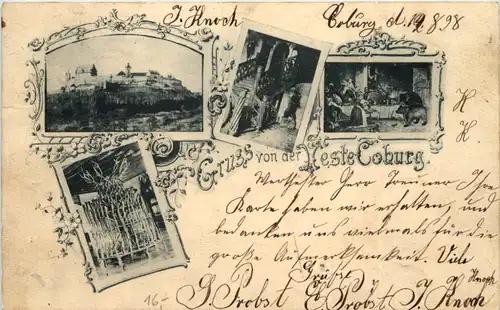 J. Knoch
Coburg d. 19 8 98
K
K
Gruss von der Veste Coburg.
Werthester Herr Ihre
Karte haben wir erhalten, und
bedanken uns vielmals für die
große Aufmerksamkeit. Viele
Grüße
G. Probst E. Probst J. Knoch
Knoch
16-